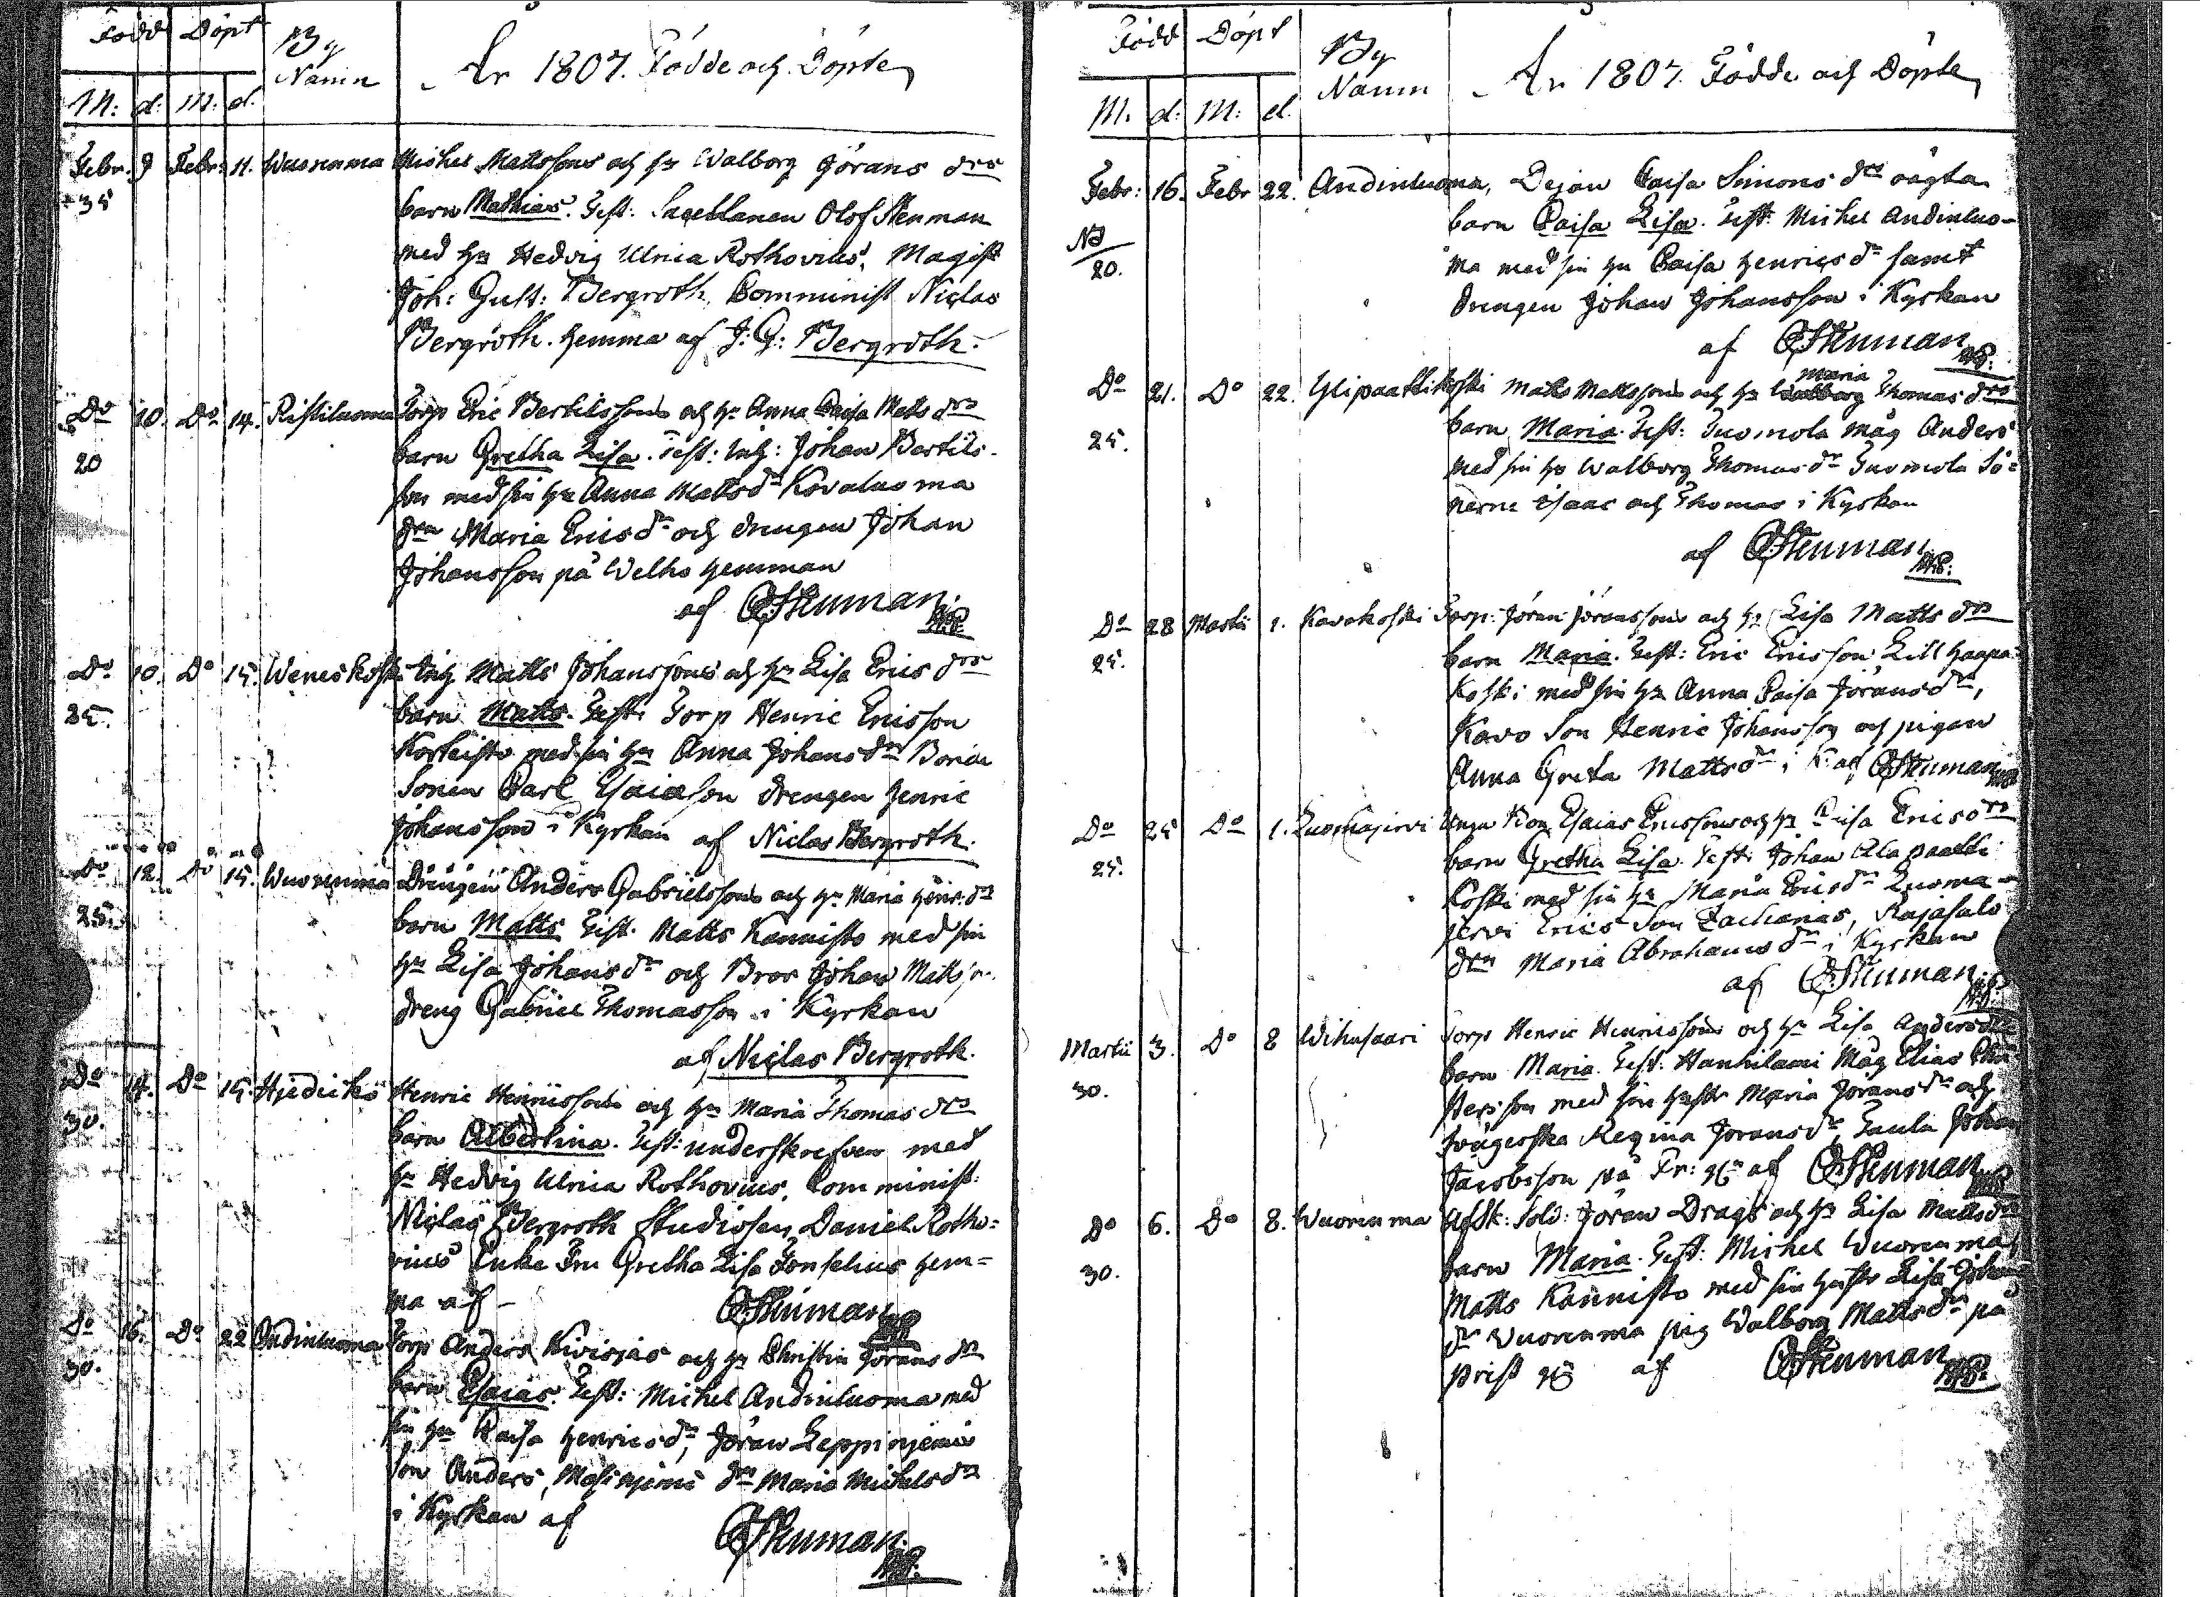 Född Döpt By Namn År 1807. Födde och Döpte
M: d: M: d.
Febr. 9 Febr: 11. Wuorenma Michel Mattssons och hu Walborg Jörans drs
35 barn Mathias. Test: Olof Stenman
med hu Hedvig Ulrica Rothovius, Magist
Joh: Gust: Bergroth, Comminist Niclas
Bergroth. hemma af J: G: Bergroth.
Do 10. Do 14. Ristiluoma Torp Eric Bertilssons och hu Anna Caisa Matts drs
20 barn Gretha Lisa. Test: Inh: Johan Bertils-
son med sin hu Anna Mattsdr Kovaluoma
drn Maria Ericsdr och drengen Johan
Johansson på Welho hemman
af OStenman
Do 10. Do 15. Weneskoski Inh Matts Johanssons och hu Lisa Erics drs
25. barn Matts. Test: Torp Henric Ericsson
Korkeisto med sin hu Anna Johansdr
Sonen Carl Esaiasson drengen Henric
Johansson i Kyrkan af Niclas Bergroth.
Do 12. Do 15. Wuorenma Drengen Anders Gabrielssons och hu Maria
25. barn Matts Test. Matts Kannisto med sin
hu Lisa Johansdr och Bror Johan Matts
dreng Gabriel Thomasson i Kyrkan
af Niclas Bergroth.
Do 14. Do 15. Henric Henricssons och hu Maria Thomas drs
30. barn Albertina. Test: underskrefven med
hu Hedvig Ulrica Rothovius, Comminist:
Niclas Bergroth Studiosen Daniel Rotho=
vius Enke Fru Gretha Lisa Fonselius hem=
ma af OStenman
Do 16. Do 22 Andinluoma Torp Anders Kivisjas och hu Christin Jörans dr
30. barn Esaias. Test: Michel Andinluoma med
sin hu Caisa Henricsdr, Jöran Leppinjemi
son Anders, drn Maria Michelsdr
i Kyrkan af
OStenman
Född Döpt By Namn År 1807. Födde och Döpte
M. d: M: d.
Febr: 16. Febr 22. Andinluoma, Dejan Caisa Simons drs oägta
barn Caisa Lisa. Test: Michel Andinluo-
20. ma med sin hu Caisa Henricsdr samt
drengen Johan Johansson i Kyrkan
af OStenman
Maria
Do 21. Do 22. Ylipaattikoski Matts Mattssons och hu Walborg Thomas drs
25. barn Maria. Test: Tuomola måg Anders
med sin hu Walborg Thomasdr Tuomola Sö=
nerne Isaac och Thomas i Kyrkan
af OStenman
Do 28 Martii 1. Kavokoski Torp: Jöran Jöranssons och hu Lisa Matts drs
25. barn Maria. Test: Eric Ericsson Lillhaapa=
koski med sin hu Anna Caisa Jöransdr,
Kavo Son Henric Johansson och pigan
Anna Greta Mattsdr i K: af OStenman
Do 25 Do 1. Luomajervi Unga Bon Esaias Ericssons och hu Caisa Erics drs
25. barn Gretha Lisa. Test: Johan Alapaatti
koski med sin hu Maria Ericsdr Luoma-
jervi Erics Son Zacharias, Rajasalo
drn Maria Abrahamsdr i Kyrkan
af OStenman
Martii 3. Do 8 Wihusaari Torp Henric Henricssons och hu Lisa Andersdrs
30. barn Maria. Test: Hannilami Måg Elias
son med sin hustr Maria Jöransdr och
svägerska Regina Jöransdr, Johan
Jacobsson på Pr: af OStenman
Do 6. Do 8. Wuorenma Afsk: Sold: Jöran Drags och hu Lisa Mattsdrs
30. barn Maria. Test: Michel Wuorenma
Matts Kannisto med sin hustr Lisa Johans
dr Wuorenma pig Walborg Mattsdr på
Prist af OStenman